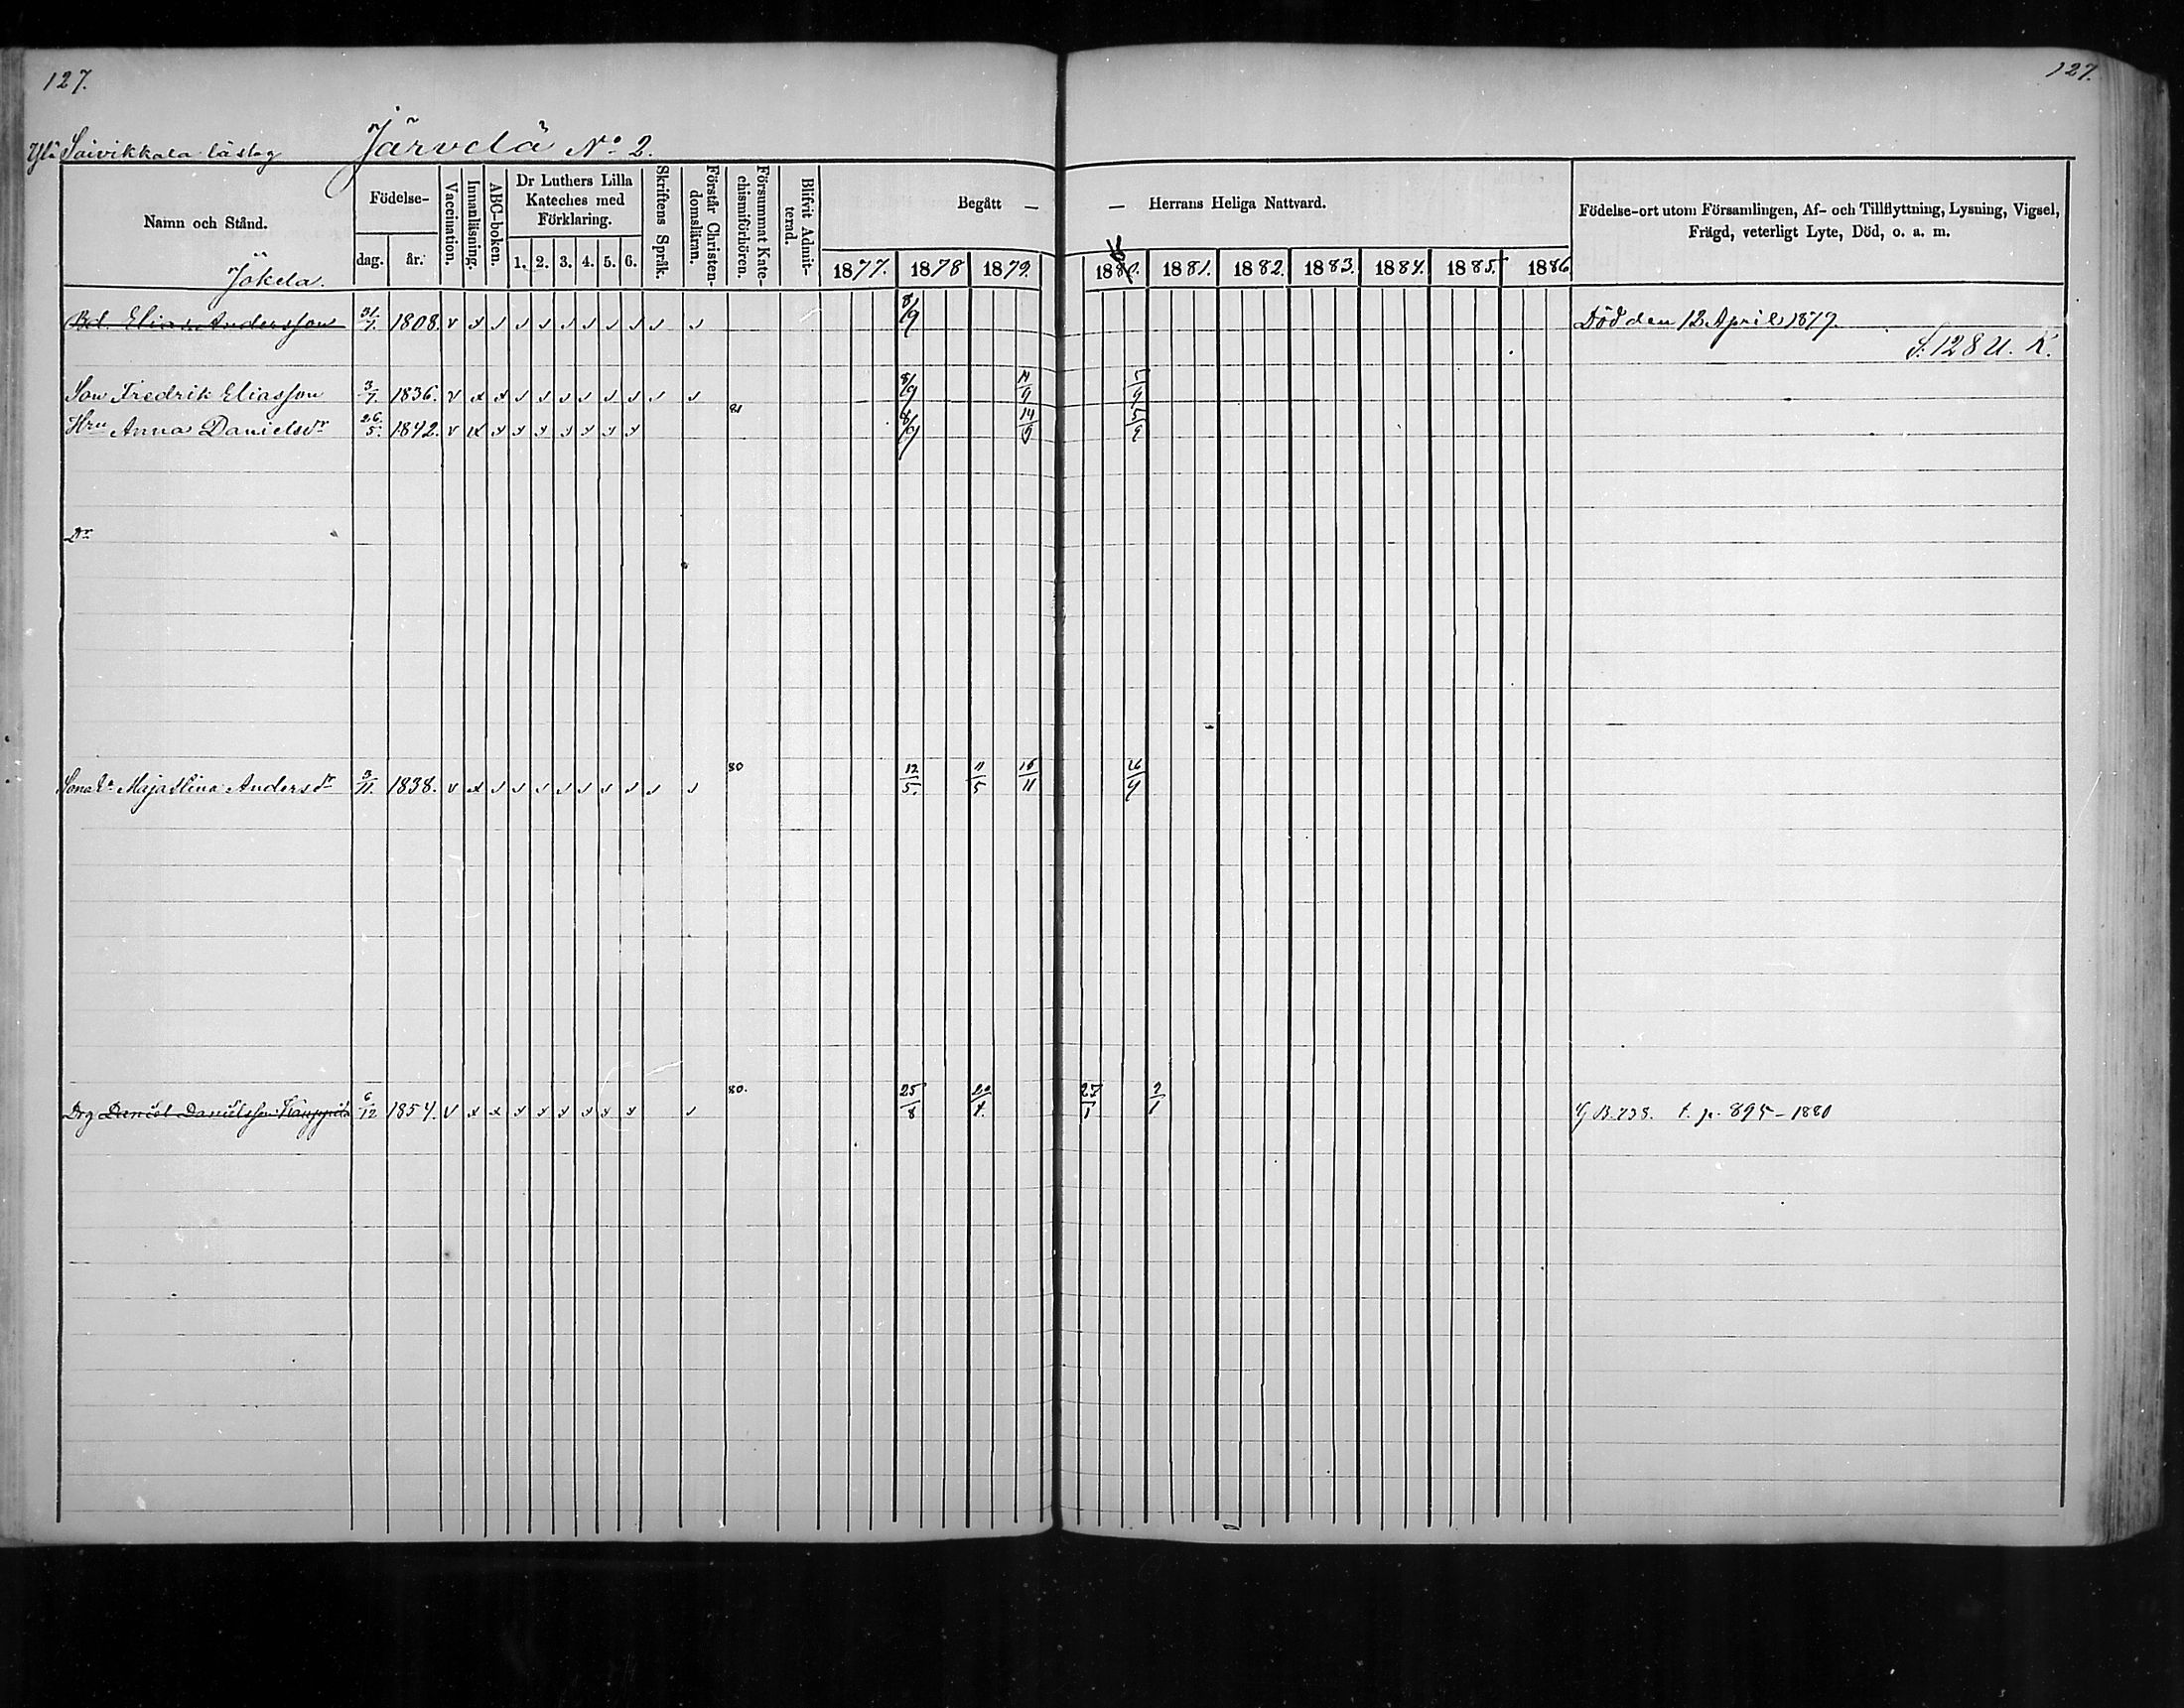 127.
127.
Ylä Saivikkala läslag Järvelä No 2.
Namn och Stånd.
Födelse-
dag.
år.
Vaccination.
Innanläsning.
ABC-boken.
Dr Luthers Lilla
Kateches med
Förklaring.
1. 2. 3. 4. 5. 6.
Skriftens Språk.
Förstår Christen-
domsläran.
Försummat Kate-
chismiförhören.
Blifvit Admit-
terad.
Begått — — Herrans Heliga Nattvard.
1877. 1878 1879. 1880. 1881. 1882. 1883. 1884. 1885. 1886
Födelse-ort utom Församlingen, Af- och Tillflyttning, Lysning, Vigsel,
Frägd, veterligt Lyte, Död, o. a. m.
Jokela.
Bd. Elias Andersson 31/7. 1808. v 8/9 Död den 12 April 1879.
S. 128 U. K.
Son Fredrik Eliasson 3/7. 1836. v 8/9 5/9
Hru Anna Danielsdr 26/5. 1842. v 81 8/9 14/9 5/9
Dr
Majastina Andersdr 3/11. 1838. v 80 12/5. 11/5 16/11 26/9
Drg Daniel Danielsson 6/12 1854. v 80. 25/8 27/1 2/1 B. 738. t. p. 895–1880